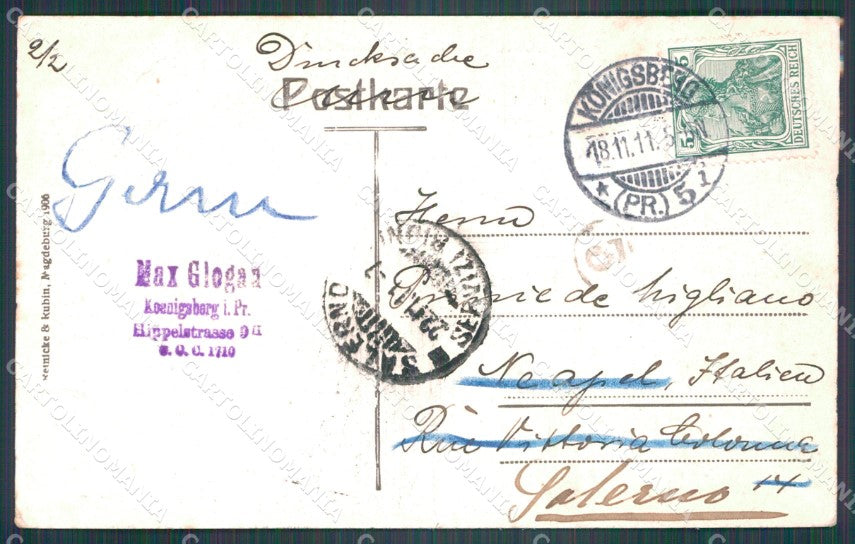 2/2
Drucksache
Postkarte
KÖNIGSBERG
18.11.11.
* (PR.) 5 i
5
DEUTSCHES REICH
Max Glogau
Koenigsberg i. Pr.
Hippelstrasse 9 II
S. O. C. 1710
Reinicke & Rubin, Magdeburg 1906
Herrn
SALERNO
de Migliano
Neapel, Italien
Rue Vittoria Colonna
14
Salerno
CARTOLINOMANIA